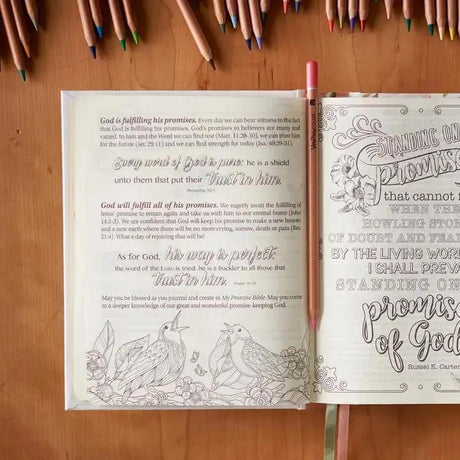 God is fulfilling his promises. Every day we can bear witness to the fact
that God is fulfilling his promises. God's promises to believers are many and
varied. In him and the Word we can find rest (Matt. 11:28-30), we can trust him
for the future (Jer. 29:11) and we can find strength for today (Isa. 40:29-31).
Every word of God is pure: he is a shield
unto them that put their trust in him.
Proverbs 30:5
God will fulfill all of his promises. We eagerly await the fulfilling of
Jesus' promise to return again and take us with him to our eternal home (John
14:2-3). We are confident that God will keep his promise to make a new heaven
and a new earth where there will be no more crying, sorrow, death or pain (Rev.
21:4). What a day of rejoicing that will be!
As for God, his way is perfect:
the word of the LORD is tried: he is a buckler to all those that
trust in him.
Psalm 18:30
May you be blessed as you journal and create in My Promise Bible. May you come
to a deeper knowledge of our great and wonderful promise-keeping God.
STANDING ON
promise
that cannot f
WHEN THE
HOWLING STOR
OF DOUBT AND FEAR
BY THE LIVING WOR
I SHALL PREVA
STANDING ON
promis
of God
Russel K. Carter